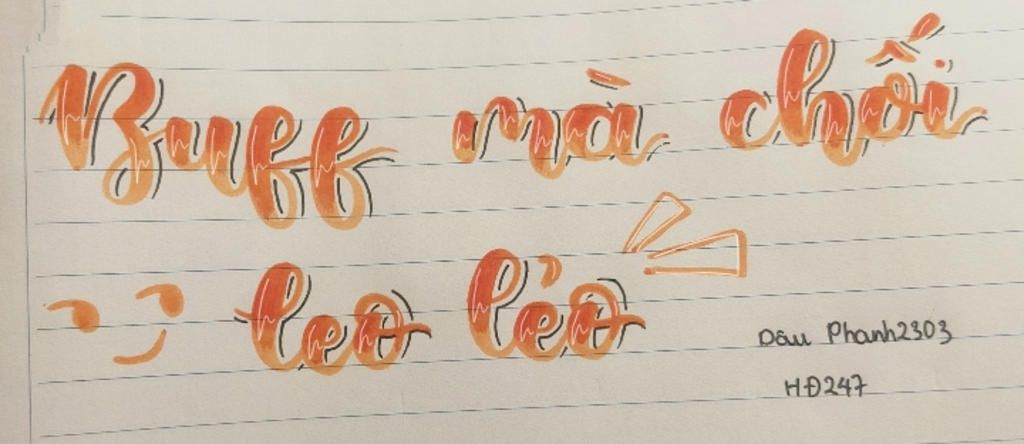 Buff mà chối
leo lẻo
Dâu Phanh2303
HĐ247